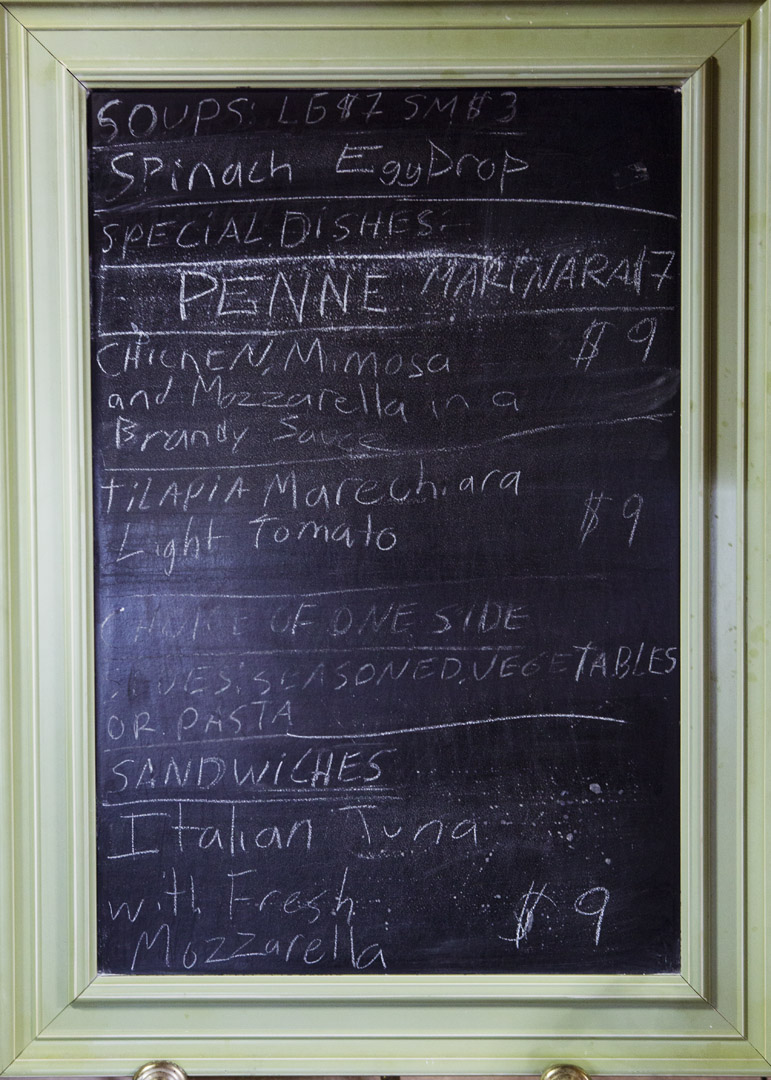 SOUPS: LG $7 SM $3
Spinach EggDrop
SPECIAL DISHES:
PENNE MARINARA $7
CHICKEN, Mimosa $9
and Mozzarella in a
Brandy Sauce
TILAPIA Marechiara
Light Tomato $9
CHOICE OF ONE SIDE
SIDES: SEASONED VEGETABLES
OR PASTA
SANDWICHES
Italian Tuna
with Fresh $9
Mozzarella